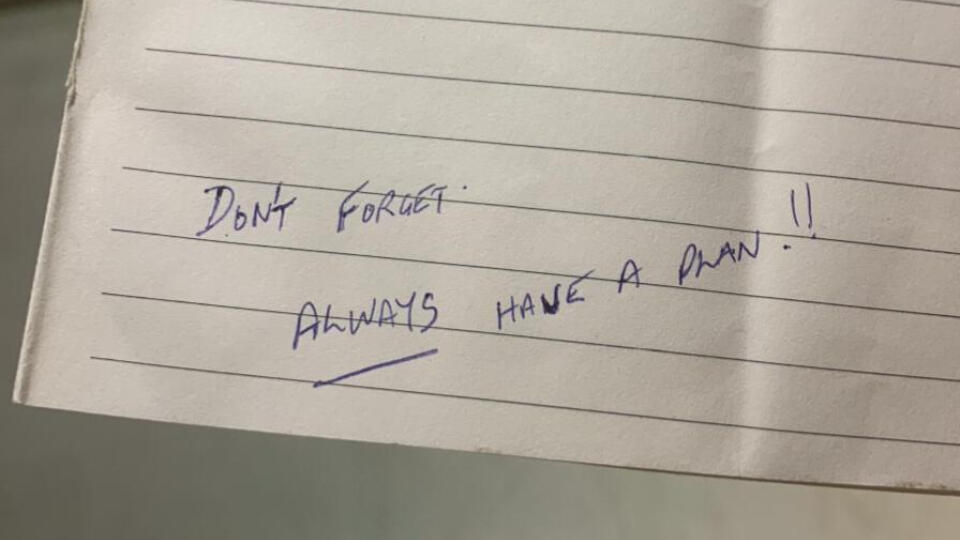 DON'T FORGET.
ALWAYS HAVE A PLAN.!!